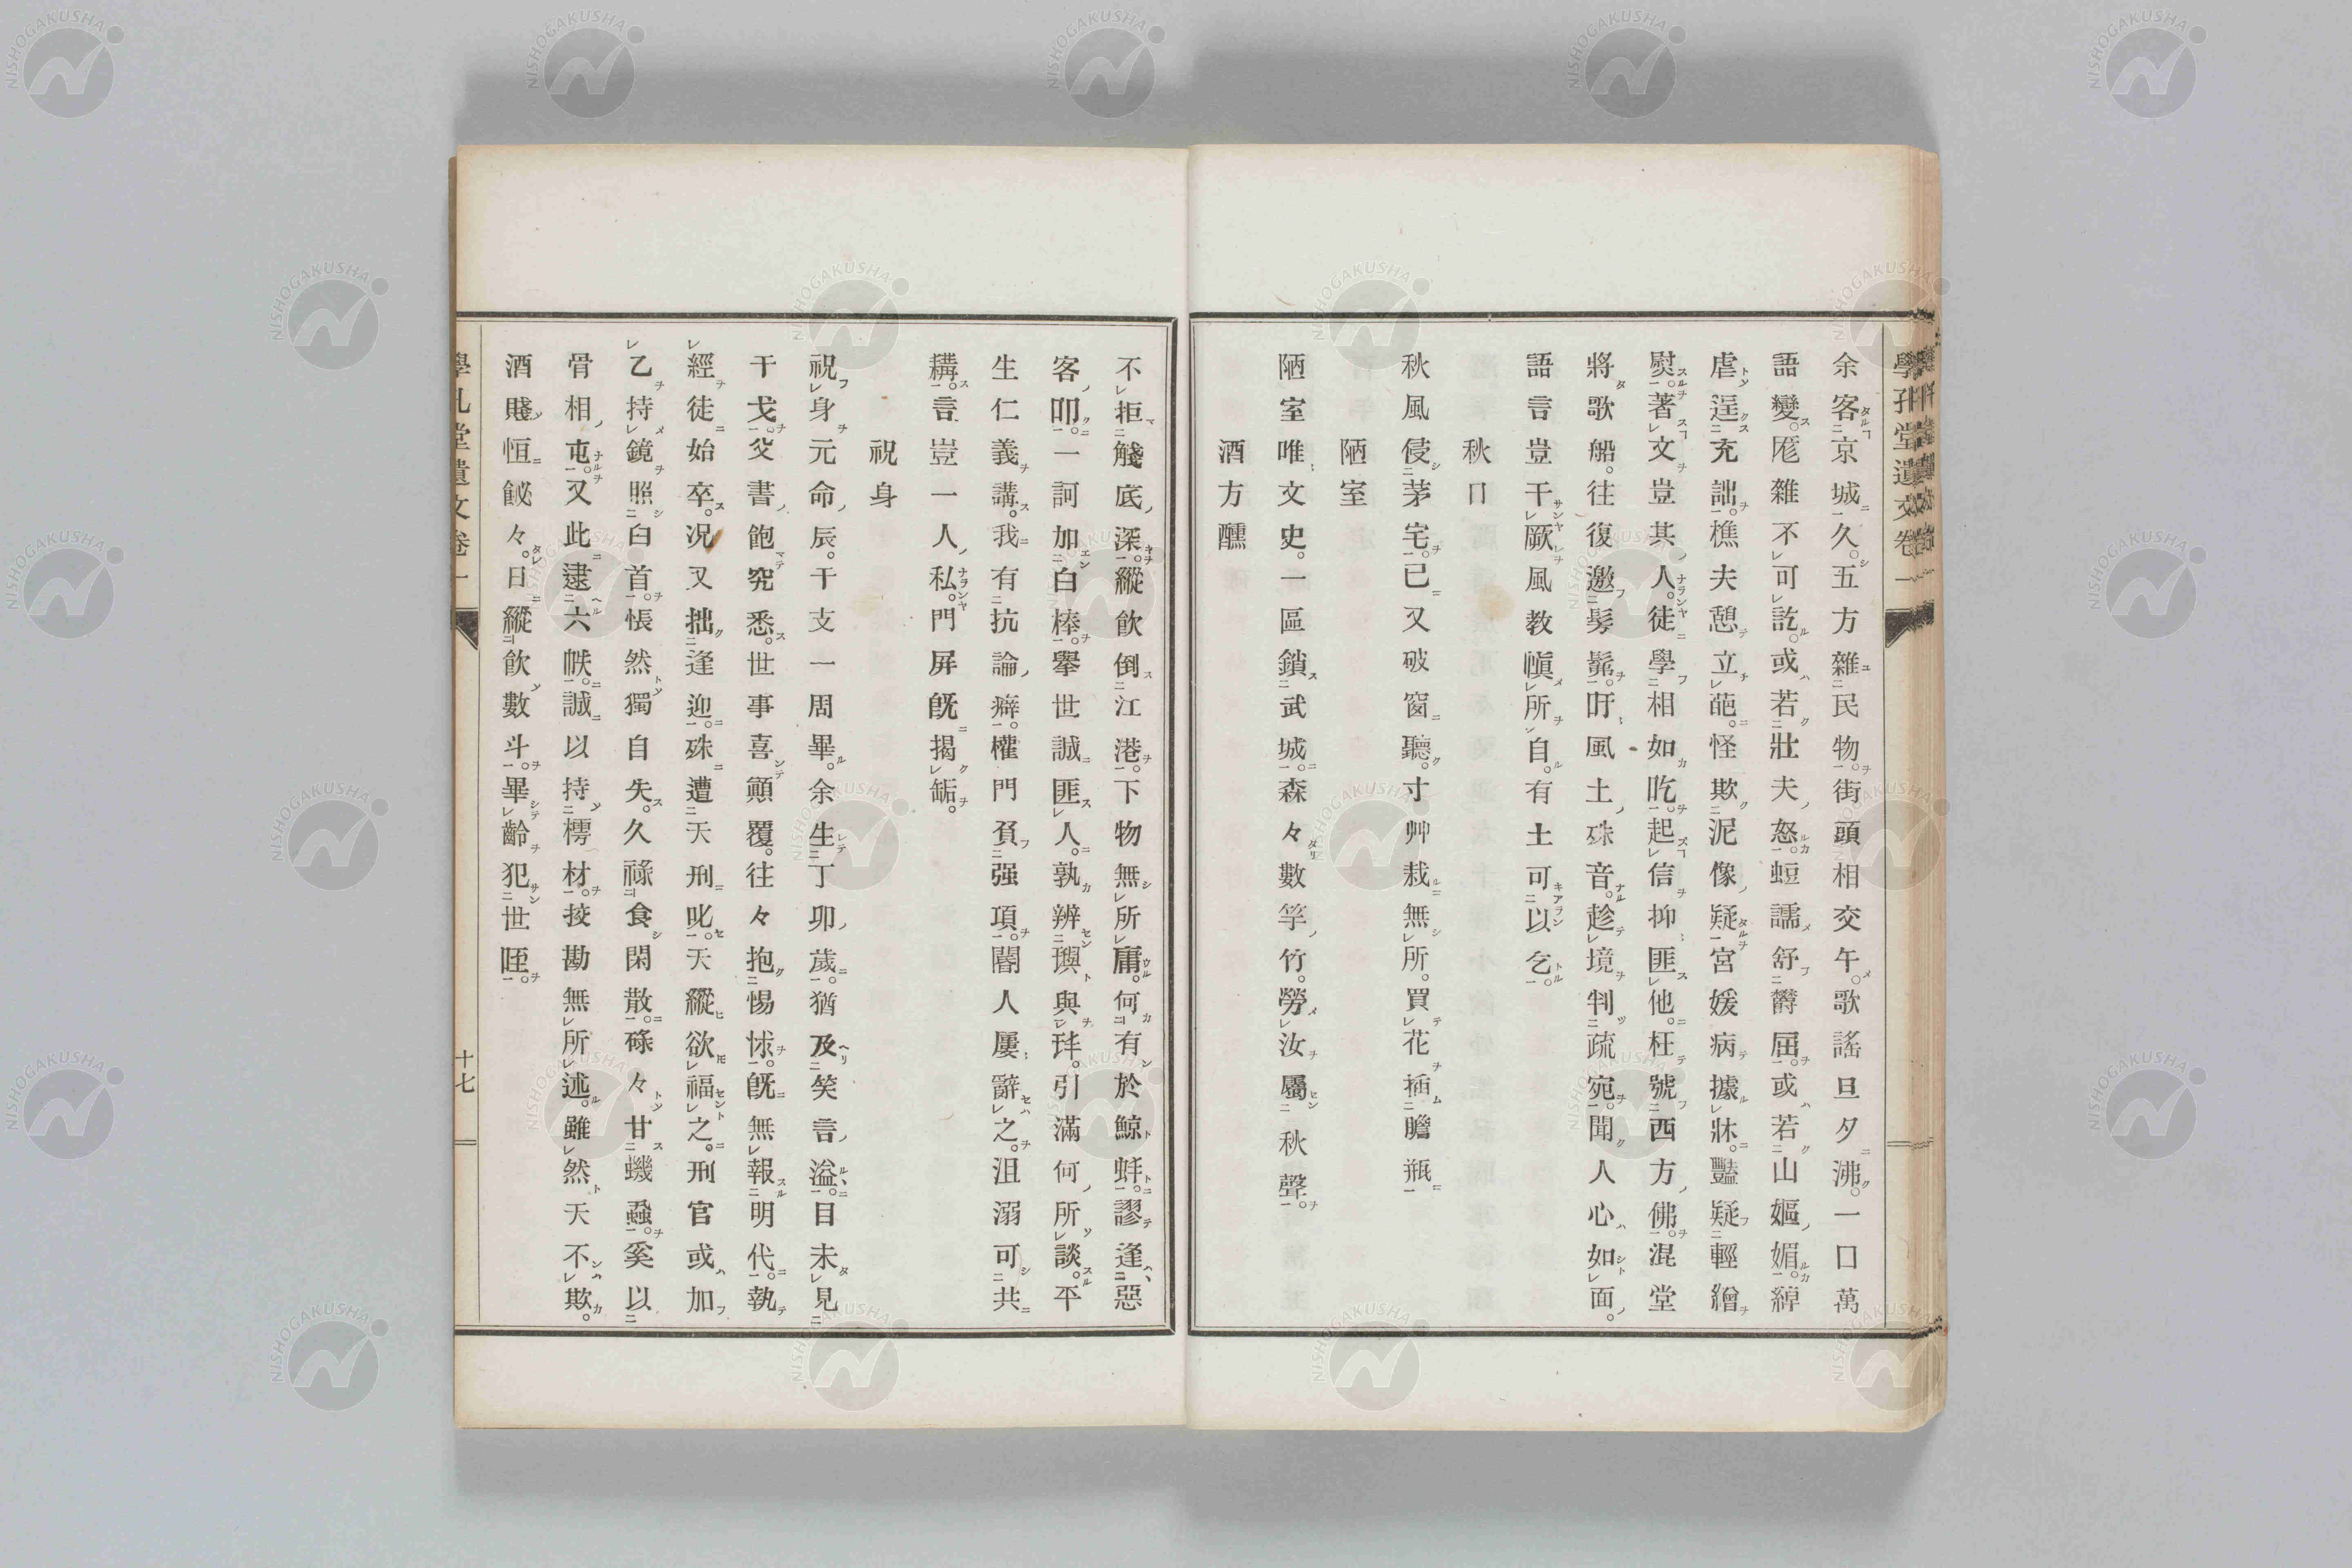 余客京城久。五方雜民物。街頭相交午。歌謠旦夕沸。一口萬
語變。厖雜不可訖。或若壯夫怒。蛣譳舒欝屈。或若山嫗媚。綽
虐逞充詘。樵夫憩立葩。怪欺泥像疑。宮媛病據牀。豔疑輕繒
熨。著文豈其人。徒學相如吃。起信抑匪他。枉號西方佛。混堂
將歌船。往復邀髣髴。盱風土殊音。趁境判疏宛。聞人心如面。
語言豈干厥風教愼所自。有土可以乞。
秋日
秋風侵茅宅。已又破窗聽。寸艸栽無所。買花插膽瓶
陋室
陋室唯文史。一區鎖武城。森々數竿竹。勞汝屬秋聲。
酒方醺
不拒觴底深。縱飲倒江港。下物無所庸。何有於鯨蚌。謬逢惡
客叩。一訶加白棒。擧世誠匪人。孰辨璵與玤。引滿何所談。平
生仁義講。我有抗論癖。權門負强項。閽人屢辭之。沮溺可共
耩。言豈一人私。門屏旣揭缿。
祝身
祝身元命辰。干支一周畢。余生丁卯歲。猶及笑言溢。目未見
干戈。殳書飽究悉。世事喜顚覆。往々抱惕怵。旣無報明代。執
經徒始卒。況又拙逢迎。殊遭天刑叱。天縱欲福之。刑官或加
乙持鏡照白首。悵然獨自失。久祿食閑散。碌々甘蟣蝨。奚以
骨相屯。又此逮六帙。誠以持樗材。挍勘無所述。雖然天不欺。
酒賤恒飶々。日縱飲數斗。畢齡犯世咥。
學孔堂遺文卷一
十七
學孔堂遺文卷一